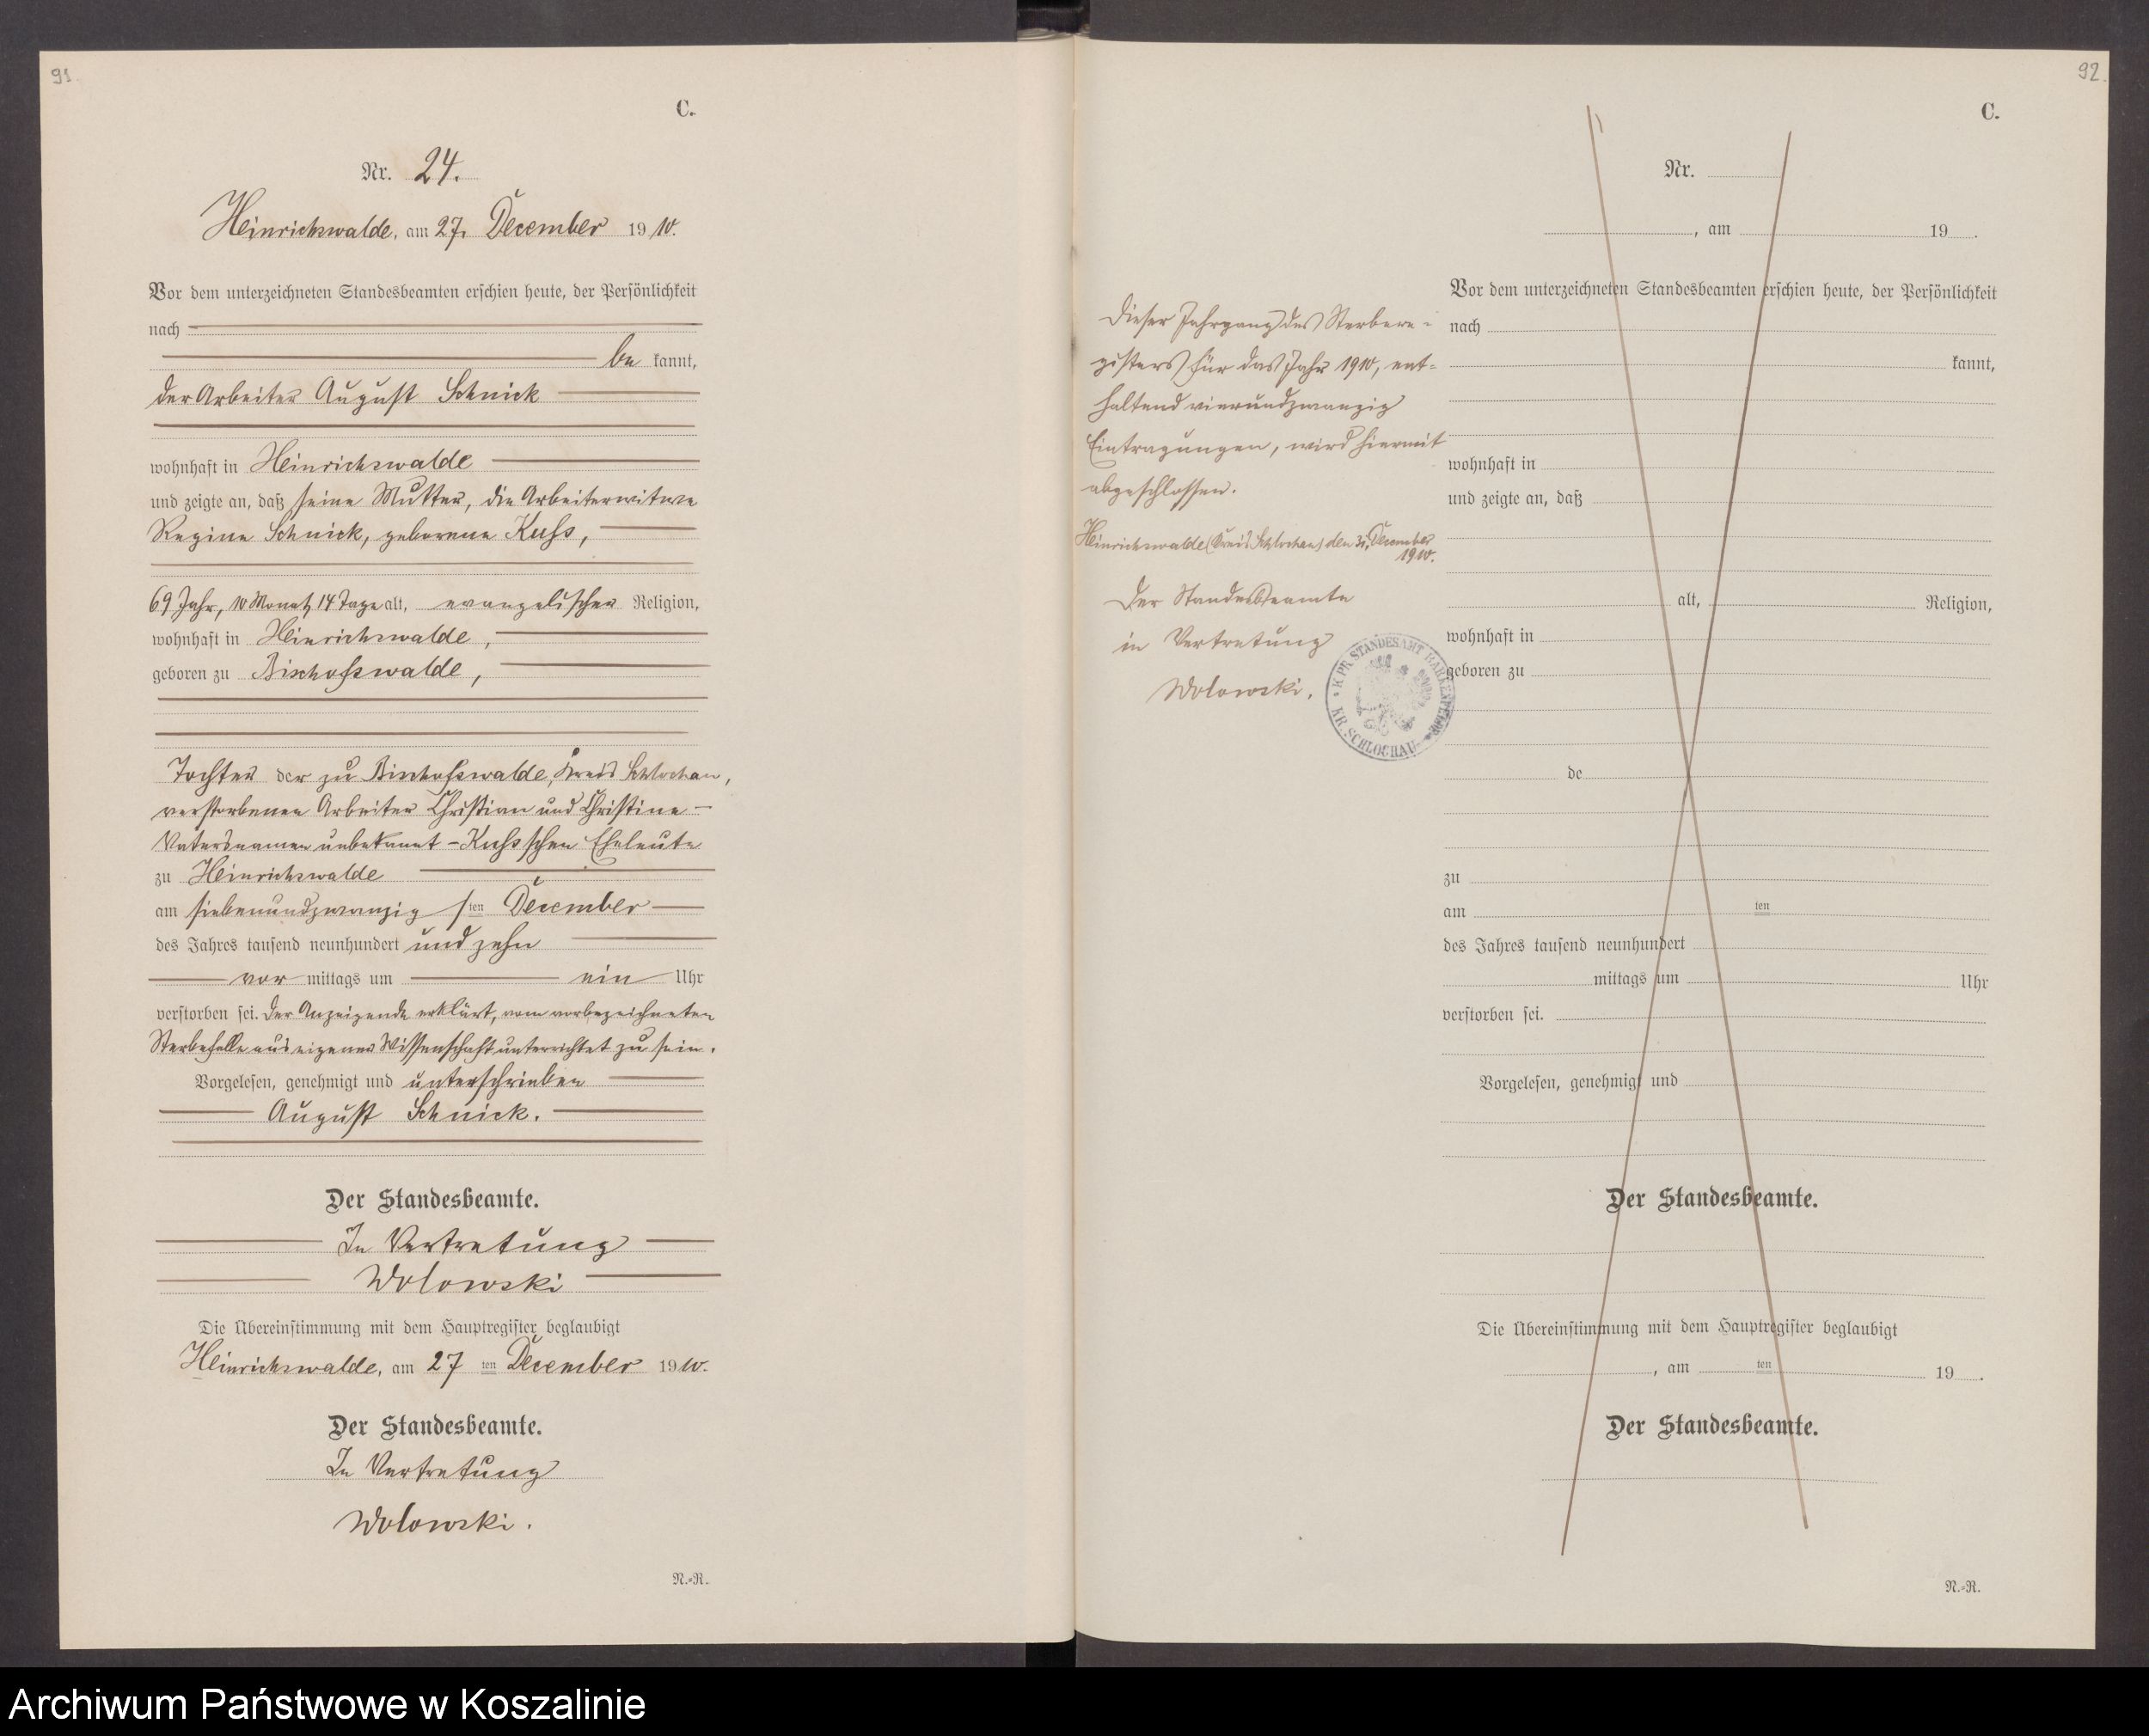 91.
C.
Nr. 24.
Heinrichswalde, am 27. December 1910.
Vor dem unterzeichneten Standesbeamten erschien heute, der Persönlichkeit
nach
be kannt,
der Arbeiter August Schnick
wohnhaft in Heinrichswalde
und zeigte an, daß seine Mutter, die Arbeiterwitwe
Regine Schnick, geborene Kuhs,
69 Jahr, 10 Monat, 14 Tage alt, evangelischer Religion,
wohnhaft in Heinrichswalde,
geboren zu Bischofswalde,
Tochter der zu Bischofswalde, Kreis Schlochau,
verstorbenen Arbeiter Christian und Christine –
Vatersnamen unbekannt – Kuhsschen Eheleute
zu Heinrichswalde
am siebenundzwanzigsten December
des Jahres tausend neunhundert und zehn
vor mittags um ein Uhr
verstorben sei. Der Anzeigende erklärt, vom vorbezeichneten
Sterbefalle aus eigener Wissenschaft unterrichtet zu sein.
Vorgelesen, genehmigt und unterschrieben
August Schnick.
Der Standesbeamte.
In Vertretung
Wolowski
Die Übereinstimmung mit dem Hauptregister beglaubigt
Heinrichswalde, am 27 ten December 1910.
Der Standesbeamte.
In Vertretung
Wolowski.
N.=R.
92.
C.
Nr.
, am 19 .
Dieser Jahrgang des Sterbere-
gisters für das Jahr 1910, ent-
haltend vierundzwanzig
Eintragungen, wird hiermit
abgeschlossen.
Heinrichswalde (Kreis Schlochau) den 31. December
1910.
Der Standesbeamte
in Vertretung
Wolowski.
K. PR. STANDESAMT
KR. SCHLOCHAU
Vor dem unterzeichneten Standesbeamten erschien heute, der Persönlichkeit
nach
kannt,
wohnhaft in
und zeigte an, daß
alt, Religion,
wohnhaft in
geboren zu
de
zu
am ten
des Jahres tausend neunhundert
mittags um Uhr
verstorben sei.
Vorgelesen, genehmigt und
Der Standesbeamte.
Die Übereinstimmung mit dem Hauptregister beglaubigt
, am ten 19 .
Der Standesbeamte.
N.=R.
Archiwum Państwowe w Koszalinie